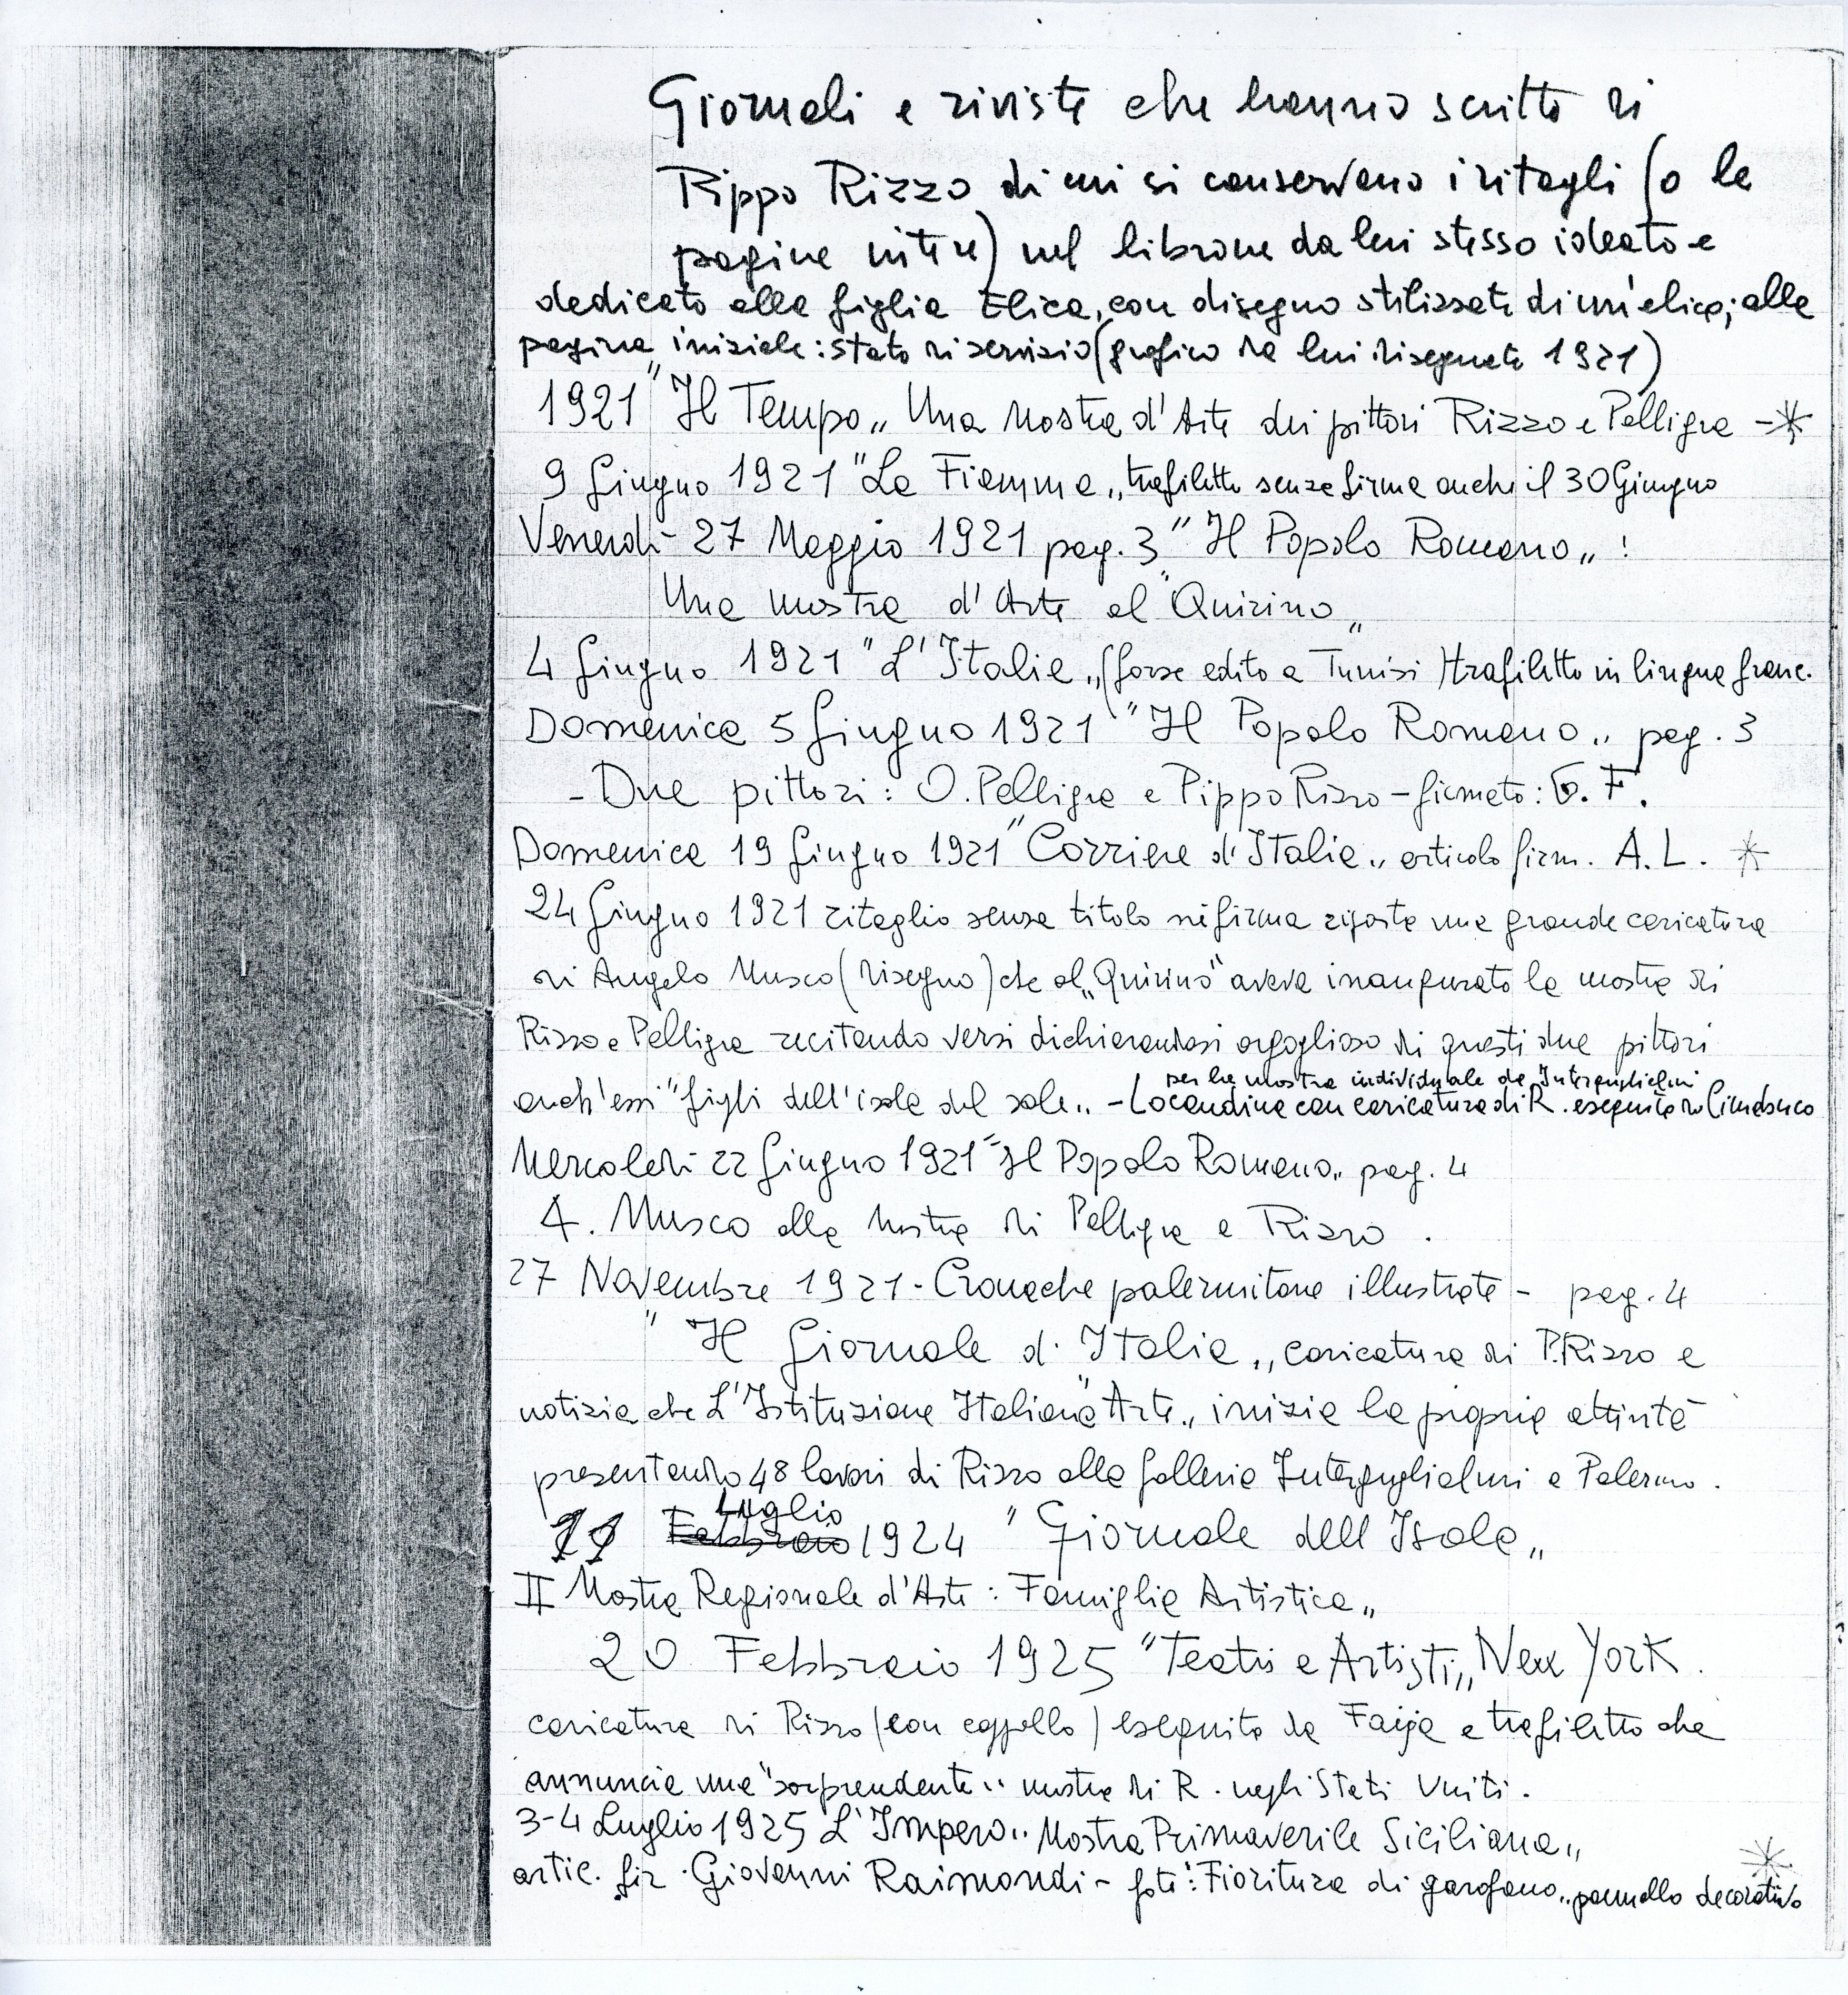 Giornali e riviste che hanno scritto di
Pippo Rizzo di cui si conservano i ritagli (o le
pagine intere) nel librone da lui stesso ideato e
dedicato alla figlia Elica, con disegno stilizzato di un'elica; alla
pagina iniziale: stato di servizio (grafico da lui disegnato 1921)
1921 "Il Tempo„ Una Mostra d'Arte dei pittori Rizzo e Pelligra - *
9 Giugno 1921 "La Fiamma„ trafiletto senza firma anche il 30 Giugno
Venerdì - 27 Maggio 1921 pag. 3 "Il Popolo Romano„ :
Una mostra d'Arte al "Quirino„
4 Giugno 1921 "L'Italie„ (forse edito a Tunisi) trafiletto in lingua franc.
Domenica 5 Giugno 1921 "Il Popolo Romano„ pag. 3
- Due pittori: O. Pelligra e Pippo Rizzo - firmato: G. F.
Domenica 19 Giugno 1921 "Corriere d'Italia„ articolo firm. A. L. *
24 Giugno 1921 ritaglio senza titolo nè firma riporta una grande caricatura
di Angelo Musco (disegno) che al „Quirino" aveva inaugurato la mostra di
Rizzo e Pelligra recitando versi dichiarandosi orgoglioso di questi due pittori
per la mostra individuale da Interguglielmi
anch'essi "figli dell'isola del sole„ - Locandina con caricatura di R. eseguita da
Mercoledì 22 Giugno 1921 "Il Popolo Romano„ pag. 4
A. Musco alla Mostra di Pelligra e Rizzo.
27 Novembre 1921 - Cronache palermitane illustrate - pag. 4
"Il Giornale d'Italia„ caricatura di P. Rizzo e
notizia che L'Istituzione Italiana "Arte„ inizia la propria attività
presentando 48 lavori di Rizzo alla Galleria Interguglielmi a Palermo.
Luglio
11 Febbraio 1924 "Giornale dell'Isola„
II Mostra Regionale d'Arte: Famiglia Artistica„
20 Febbraio 1925 "Teatri e Artisti„ New York.
caricatura di Rizzo (con cappello) eseguita da e trafiletto che
annuncia una "sorprendente„ mostra di R. negli Stati Uniti.
3-4 Luglio 1925 L'Impero„ Mostra Primaverile Siciliana„
artic. fir. Giovanni Raimondi - foto: "Fioritura di garofano„ pannello decorativo *